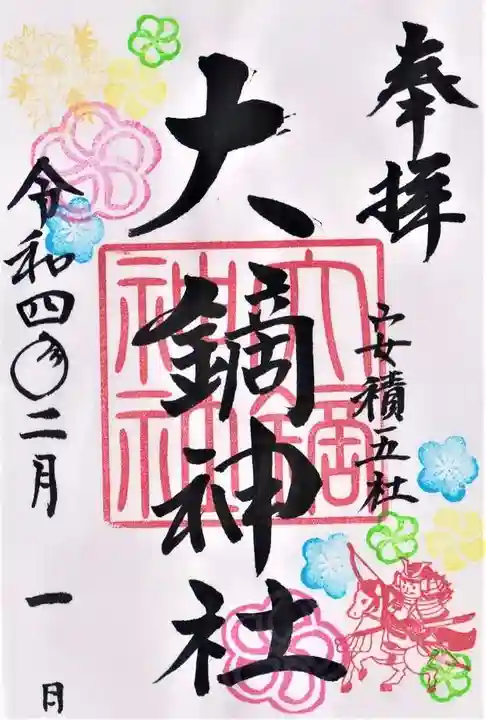 奉拝
安積五社
大鏑神社
大鏑神社
令和四年二月一日